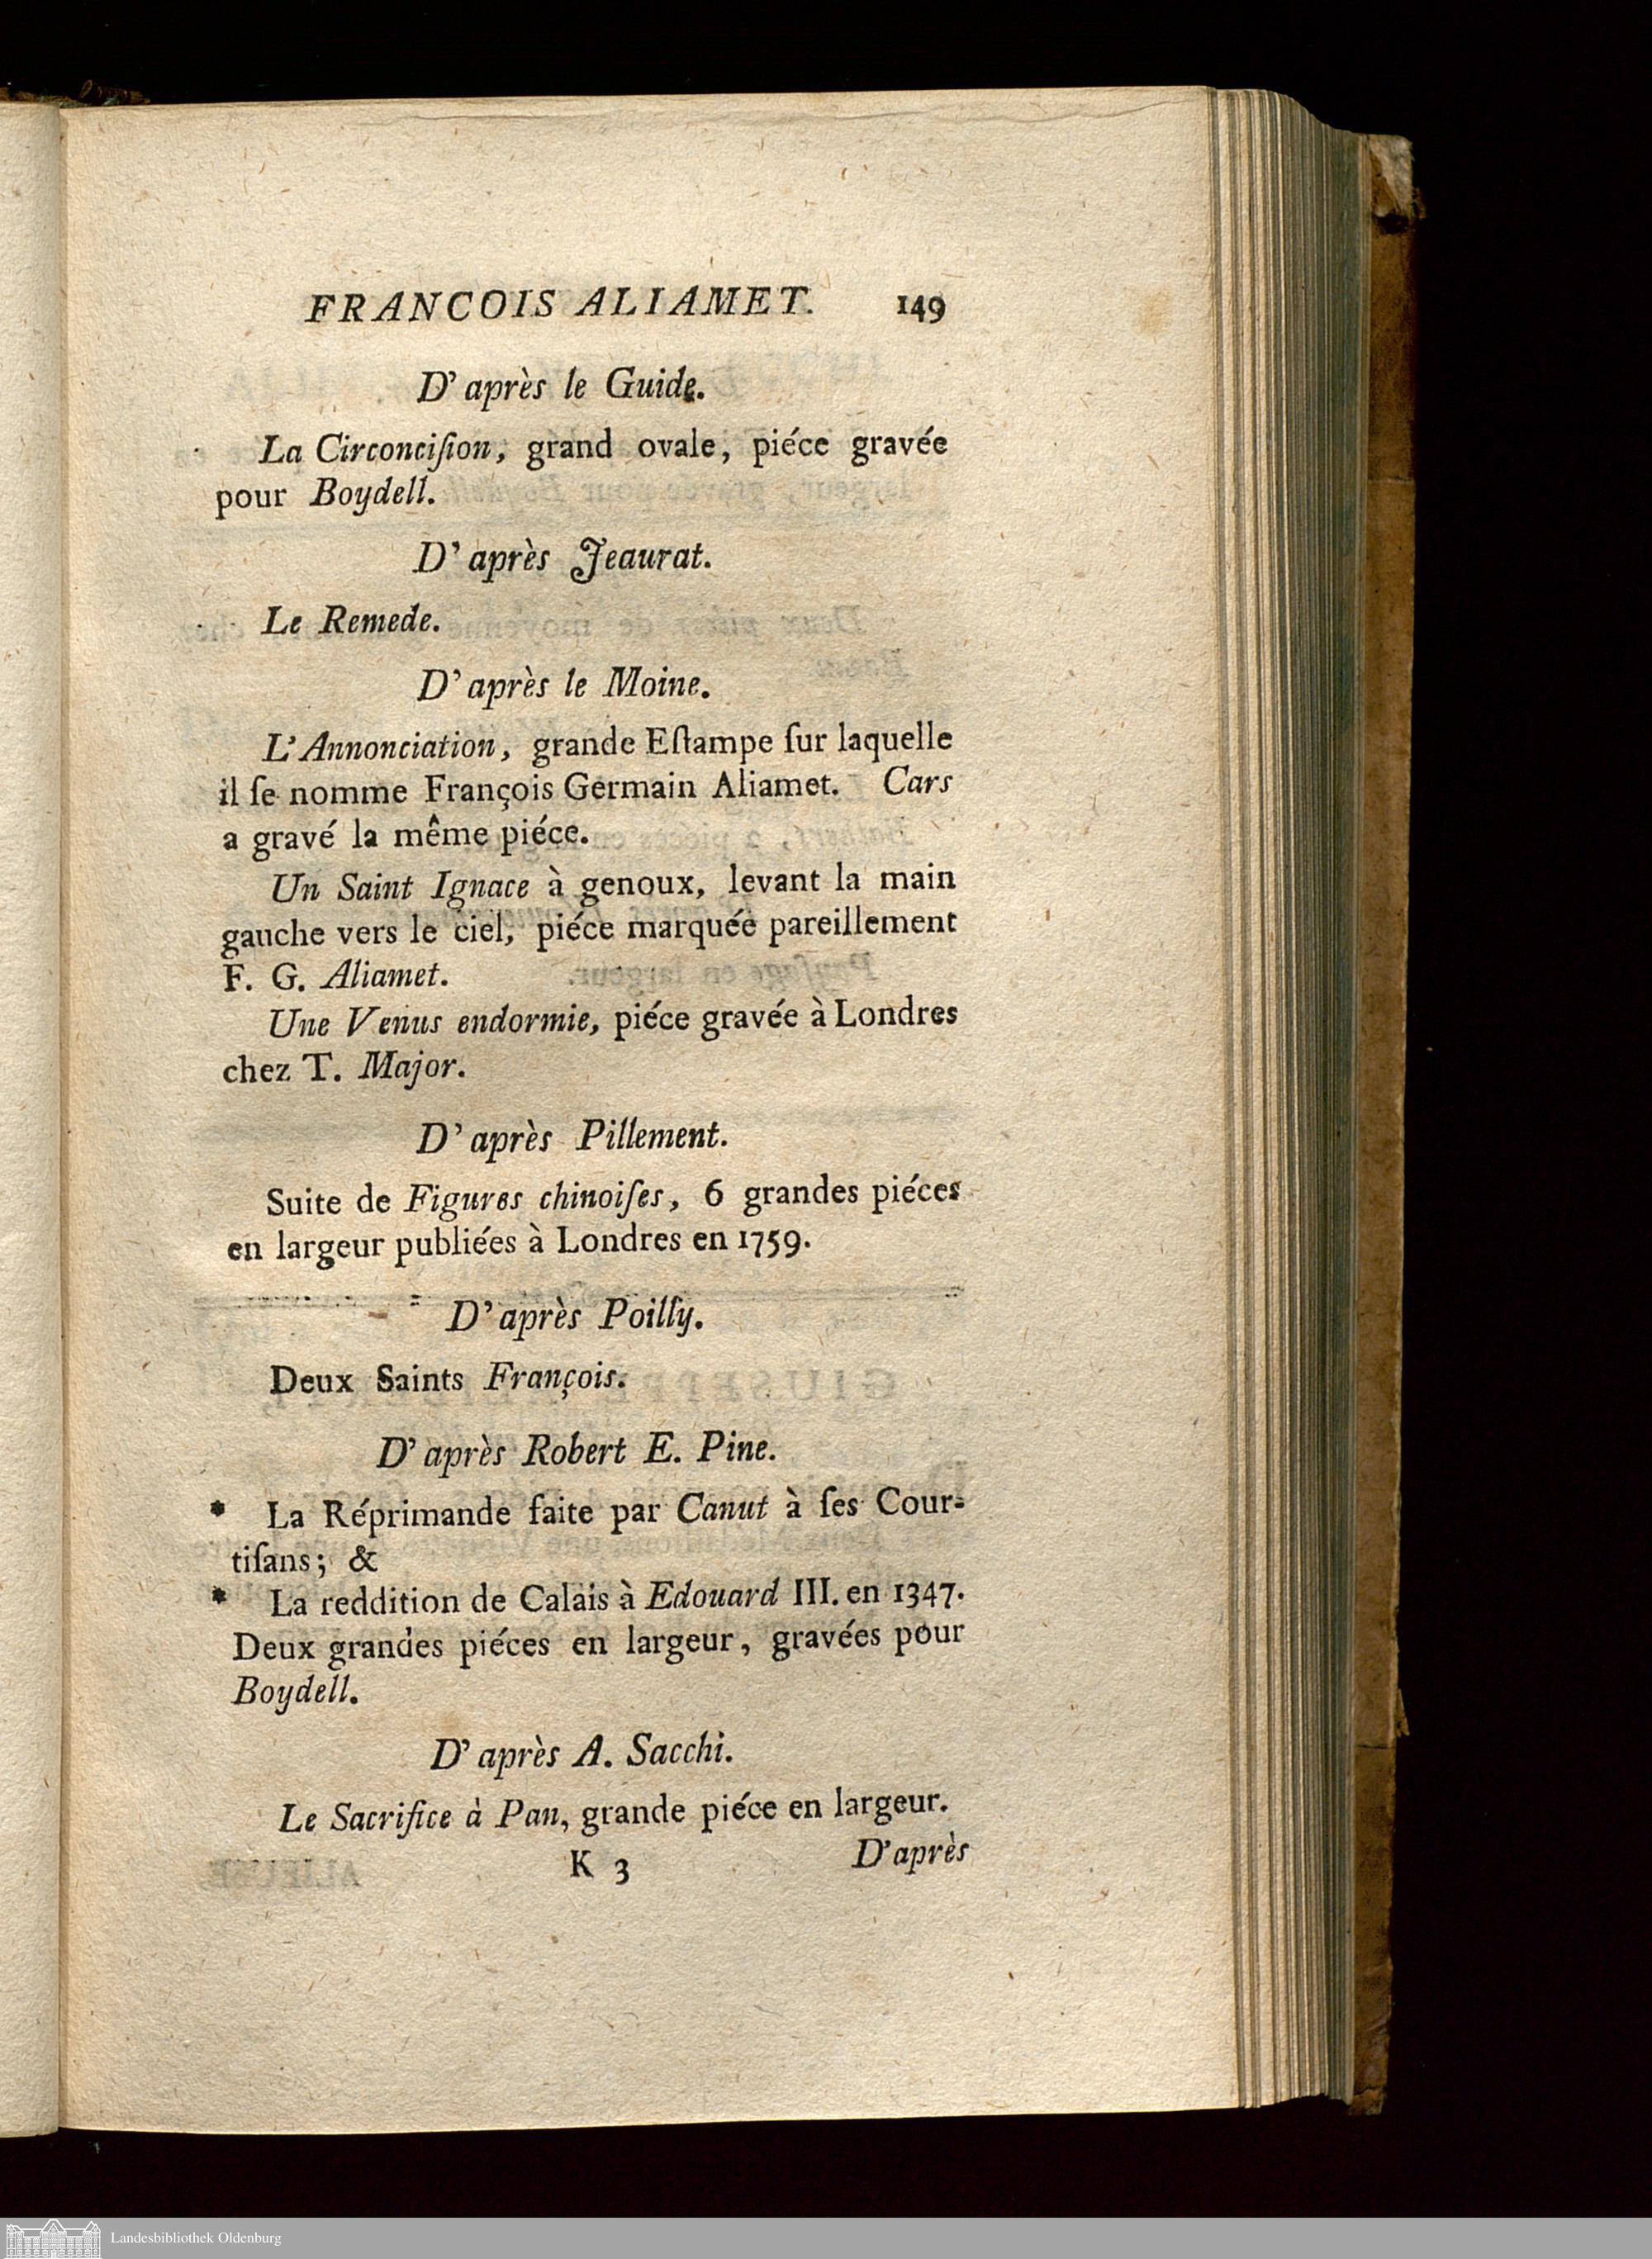 FRANCOIS ALIAMET. 149
D'après le Guide.
La Circonciſion, grand ovale, piéce gravée
pour Boydell.
D'après Jeaurat.
Le Remede.
D'après le Moine.
L'Annonciation, grande Eſtampe ſur laquelle
il ſe nomme François Germain Aliamet. Cars
a gravé la même piéce.
Un Saint Ignace à genoux, levant la main
gauche vers le ciel, piéce marquée pareillement
F. G. Aliamet.
Une Venus endormie, piéce gravée à Londres
chez T. Major.
D'après Pillement.
Suite de Figures chinoiſes, 6 grandes piéces
en largeur publiées à Londres en 1759.
D'après Poilly.
Deux Saints François.
D'après Robert E. Pine.
* La Réprimande faite par Canut à ſes Cour-
tiſans; &
* La reddition de Calais à Edouard III. en 1347.
Deux grandes piéces en largeur, gravées pour
Boydell.
D'après A. Sacchi.
Le Sacrifice à Pan, grande piéce en largeur.
K 3 D'après
Landesbibliothek Oldenburg